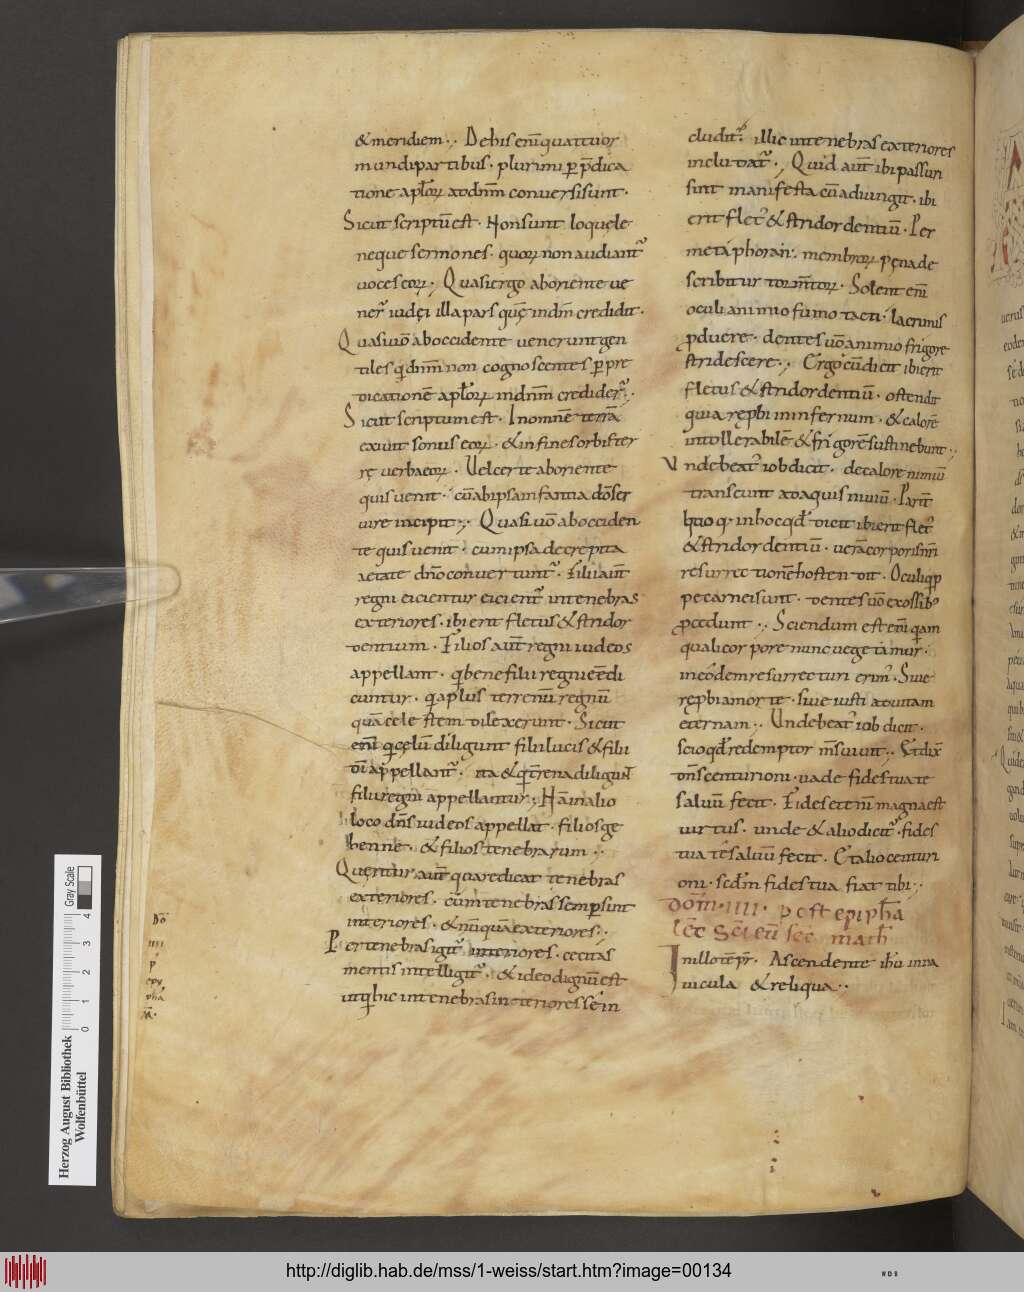 & meridiem . De his enī quattuor
mundi partibus . plurimi p̱ p̄dica
tione aploꝝ ad dnm̄ conversi sunt .
Sicut scriptū est . Non sunt loquele
neque sermones . quoꝝ non audiant᷑
voces eoꝝ . Quasi ergo ab oriente ve
ner᷑ iudęi illa pars quę in dnm̄ credidit .
Quasi vō ab occidente venerunt gen
tiles q̇ dnm̄ non cognoscentes p̱ pre
dicationē aploꝝ in dnm̄ credider᷑ .
Sicut scriptum est . In omnē terrā
exiunt sonus eoꝝ . & in fines orbis ter
rę verba eoꝝ . Vel certe ab oriente
quis venit . cū ab ipsa infantia dō ser
vire incipit . Quasi vō ab occiden
te quis venit . cum ipsa decrepita
aetate dn̄o convertunt᷑ . Filii aūt
regni eicientur eicient᷑ in tenebras
exteriores . ibi erit fletus & stridor
dentium . Filios aūt regni iudeos
appellant . q̇ bene filii regni eēdi
cuntur . q̇a plus terrenū regnū
quā celestem dilexerunt . Sicut
enī q̇ cęlū diligunt filii lucis & filii
dī appellant᷑ . ita & q̇ t̄rena diligunt
filii regni appellantur . Nā in alio
loco dn̄s iudeos appellat . filios ge
henne . & filios tenebrarum .
Queritur aūt quare dicat tenebras
exteriores . cūm tenebras semp̱ sint
interiores . & nūquā exteriores .
Per tenebras igit᷑ interiores . cecitas
mentis intelligit᷑ . & ideo dignū est
ut q̇ hic in tenebras interiores sē in
cludit᷑ . illic in tenebras exteriores
includat᷑ . Quid aūt ibi passuri
sint manifesta cū adiungit . ibi
erit flet᷑ & stridor dentiū . Per
metaphoran . membroꝝ pęna de
scribitur tormtoꝝ . Solent enī
oculi animio fumo tacti . lacrimis
ꝓduere . dentes vō animio frigore
stridescere . Ergo cū dicit ibi erit
fletus & stridor dentiū . ostendit
quia ręp̱bi in infernum . & calorē
intollerabilē & frigorē sustinebunt .
Unde beat᷑ iob dicit . de calore nimiū
transeunt ad aquis niuiū . Parit̄
hoc in hoc qd̄ dicit ibi erit flet᷑
& stridor dentiū . verā corporis nr̄i
resurrectionē hosten dit . Oculi q̇p̱
pe carnei sunt . dentes vō ex ossib᷑
ꝓcedunt . Sciendum est enī q̇am
quali corpore nunc vegetamur .
in eōdem resurrecturi erim᷑ . Sive
ręp̱bi a morte . sive iusti ad vitam
eternam . Unde beat᷑ iob dicit .
scio qd̄ redemptor ms̄ vivit . Et dix̄
dn̄s centurioni . vade fides tua te
salvū fecit . Fides etenī magna est
virtus . unde & alio dicit᷑ . fides
tua tē salvū fecit . Et alio centuri
oni . scdm̄ fides tua fiat tibi .
Dom̄ . IIII . post epiphā
lec̄ sc̄i eū sec math
In illo tēpr . Ascendente ihū in na
vicula & reliqua .
Do
IIII
p̄
epy
phā
M̄ .
Herzog August Bibliothek
Wolfenbüttel
Gray Scale
0 1 2 3 4
http://diglib.hab.de/mss/1-weiss/start.htm?image=00134